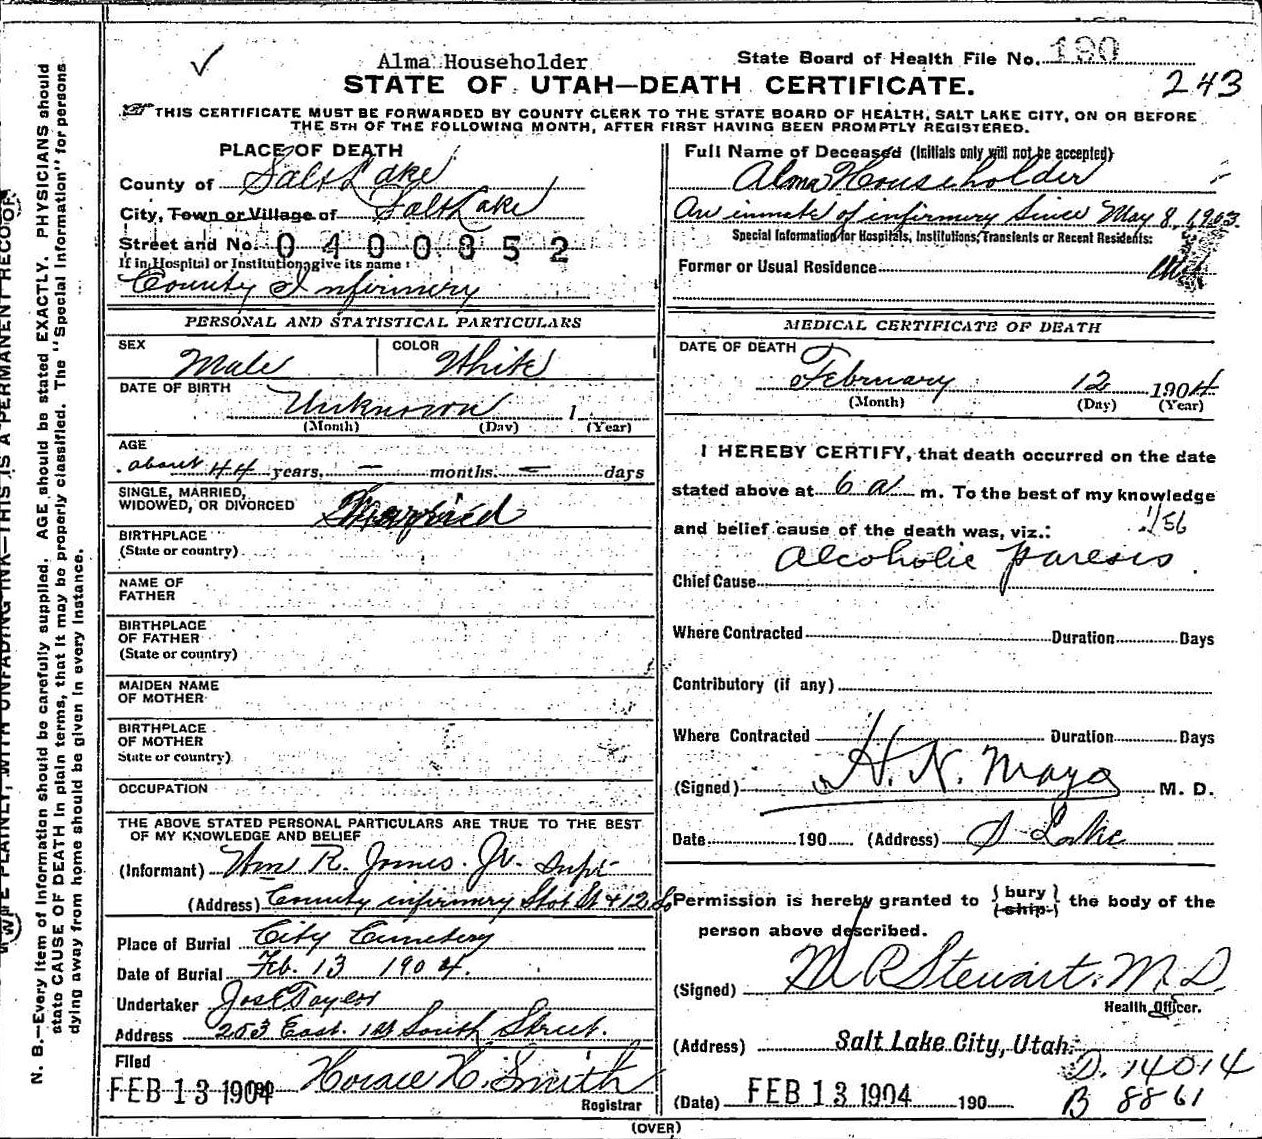 Alma Householder
State Board of Health File No. 190
243
STATE OF UTAH—DEATH CERTIFICATE.
THIS CERTIFICATE MUST BE FORWARDED BY COUNTY CLERK TO THE STATE BOARD OF HEALTH, SALT LAKE CITY, ON OR BEFORE
THE 5TH OF THE FOLLOWING MONTH, AFTER FIRST HAVING BEEN PROMPTLY REGISTERED.
PLACE OF DEATH
County of Salt Lake
City, Town or Village of Salt Lake
Street and No. 0400852
If in Hospital or Institution, give its name:
County Infirmery
PERSONAL AND STATISTICAL PARTICULARS
SEX Male COLOR White
DATE OF BIRTH Unknown 1
(Month) (Day) (Year)
AGE
about 44 years, — months. — days
SINGLE, MARRIED,
WIDOWED, OR DIVORCED Married
BIRTHPLACE
(State or country)
NAME OF
FATHER
BIRTHPLACE
OF FATHER
(State or country)
MAIDEN NAME
OF MOTHER
BIRTHPLACE
OF MOTHER
State or country)
OCCUPATION
THE ABOVE STATED PERSONAL PARTICULARS ARE TRUE TO THE BEST
OF MY KNOWLEDGE AND BELIEF
(Informant) Wm R. Jones. Jr. Supt
(Address) County infirmery Stat St & 12 So
Place of Burial City Cemetery
Date of Burial Feb. 13 1904.
Undertaker Jos E Taylor
Address 253 East. 1st South Street.
Filed
FEB 13 1904 Horace H. Smith
Registrar
Full Name of Deceased (Initials only will not be accepted)
Alma Householder
An inmate of infirmery since May 8, 1903.
Special Information for Hospitals, Institutions, Transients or Recent Residents:
Former or Usual Residence
MEDICAL CERTIFICATE OF DEATH
DATE OF DEATH
February 12 1904
(Month) (Day) (Year)
I HEREBY CERTIFY, that death occurred on the date
stated above at 6 a m. To the best of my knowledge
and belief cause of the death was, viz.: 156
Alcoholic paresis.
Chief Cause
Where Contracted Duration Days
Contributory (if any)
Where Contracted Duration Days
(Signed) H. N. Mayo M. D.
Date 190 (Address) S Lake
Permission is hereby granted to {bury / ship} the body of the
person above described.
(Signed) M R Stewart. M. D.
Health Officer.
(Address) Salt Lake City, Utah.
D. 14014
(Date) FEB 13 1904 190
B 8861
(OVER)
N. B.—Every item of Information should be carefully supplied. AGE should be stated EXACTLY. PHYSICIANS should
state CAUSE OF DEATH in plain terms, that it may be properly classified. The "Special Information" for persons
dying away from home should be given in every instance.
PLAINLY, WITH UNFADING INK—THIS IS A PERMANENT RECORD